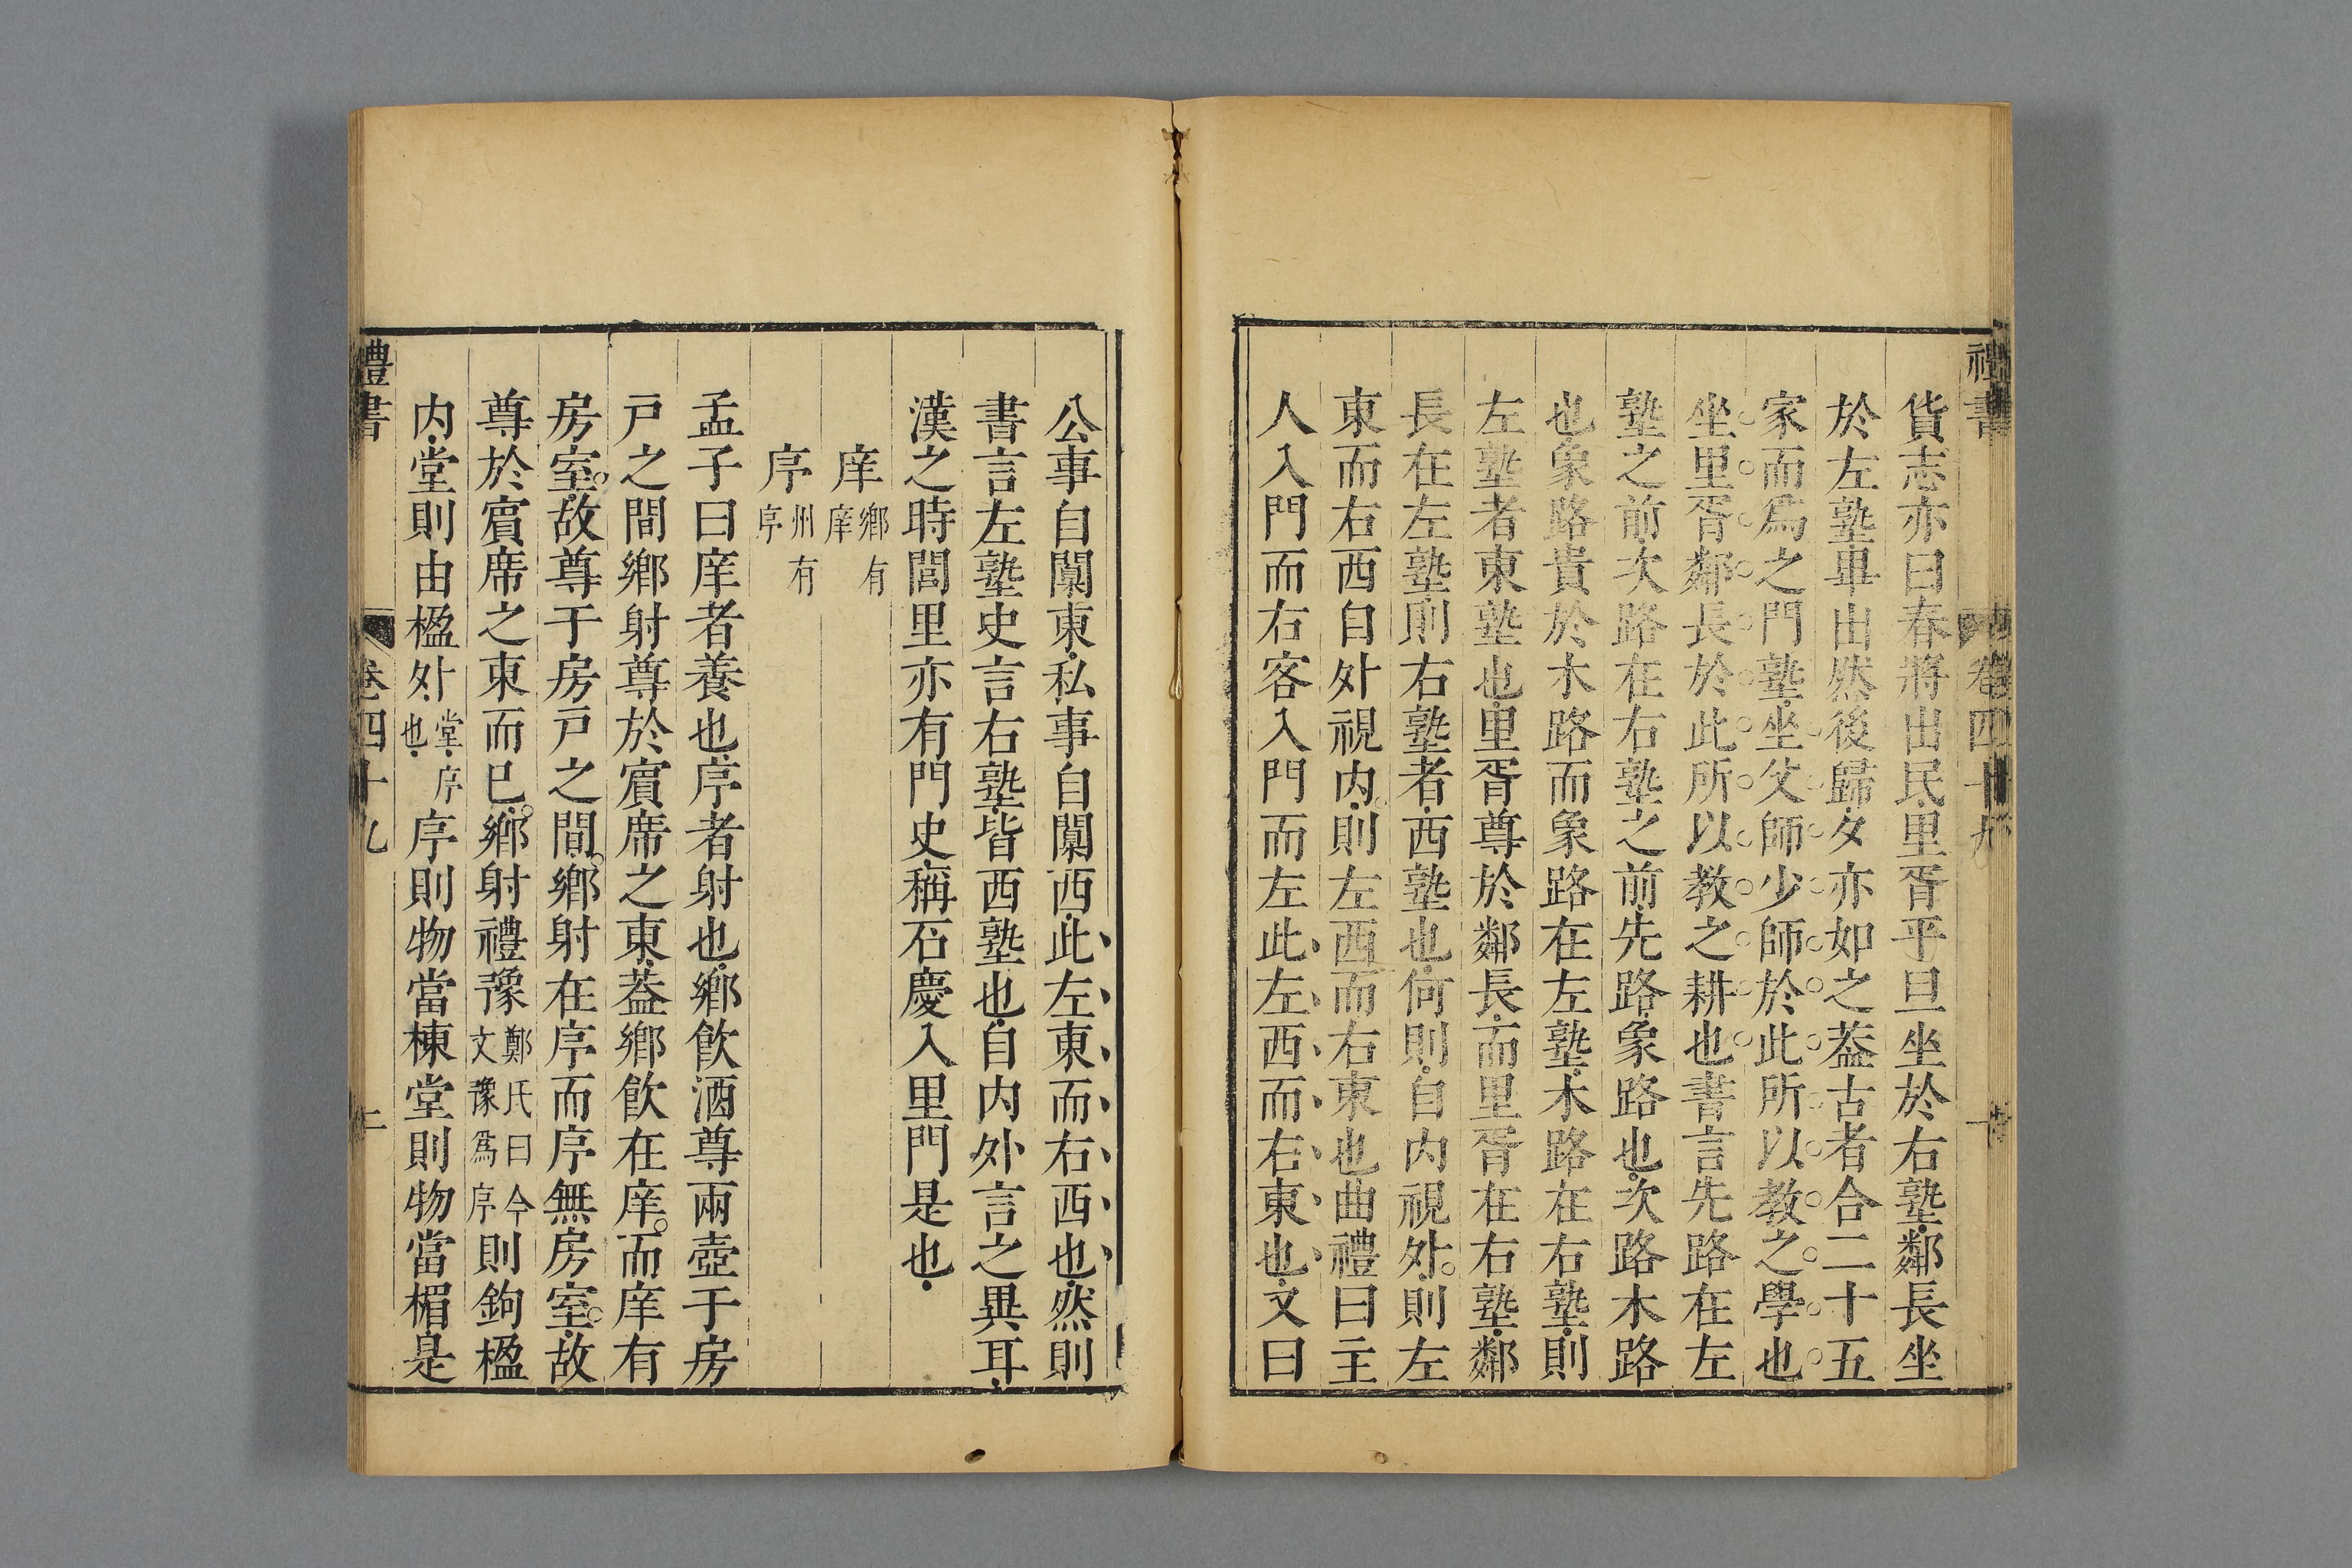 禮書 卷四十九 十
貨志亦曰春將出民里胥平旦坐於右塾鄰長坐
於左塾畢出然後歸夕亦如之蓋古者合二十五
家而爲之門塾坐父師少師於此所以教之學也
坐里胥鄰長於此所以教之耕也書言先路在左
塾之前次路在右塾之前先路象路也次路木路
也象路貴於木路而象路在左塾木路在右塾則
左塾者東塾也里胥尊於鄰長而里胥在右塾鄰
長在左塾則右塾者西塾也何則自内視外則左
東而右西自外視内則左西而右東也曲禮曰主
人入門而右客入門而左此左西而右東也又曰
公事自闑東私事自闑西此左東而右西也然則
書言左塾史言右塾皆西塾也自内外言之異耳
漢之時閭里亦有門史稱石慶入里門是也
庠鄉有庠
序州有序
孟子曰庠者養也序者射也鄉飲酒尊兩壺于房
戸之間鄉射尊於賓席之東蓋鄉飲在庠而庠有
房室故尊于房戸之間鄉射在序而序無房室故
尊於賓席之東而已鄉射禮豫鄭氏曰今文豫爲序則鉤楹
内堂則由楹外堂序也序則物當棟堂則物當楣是
禮書 卷四十九 二